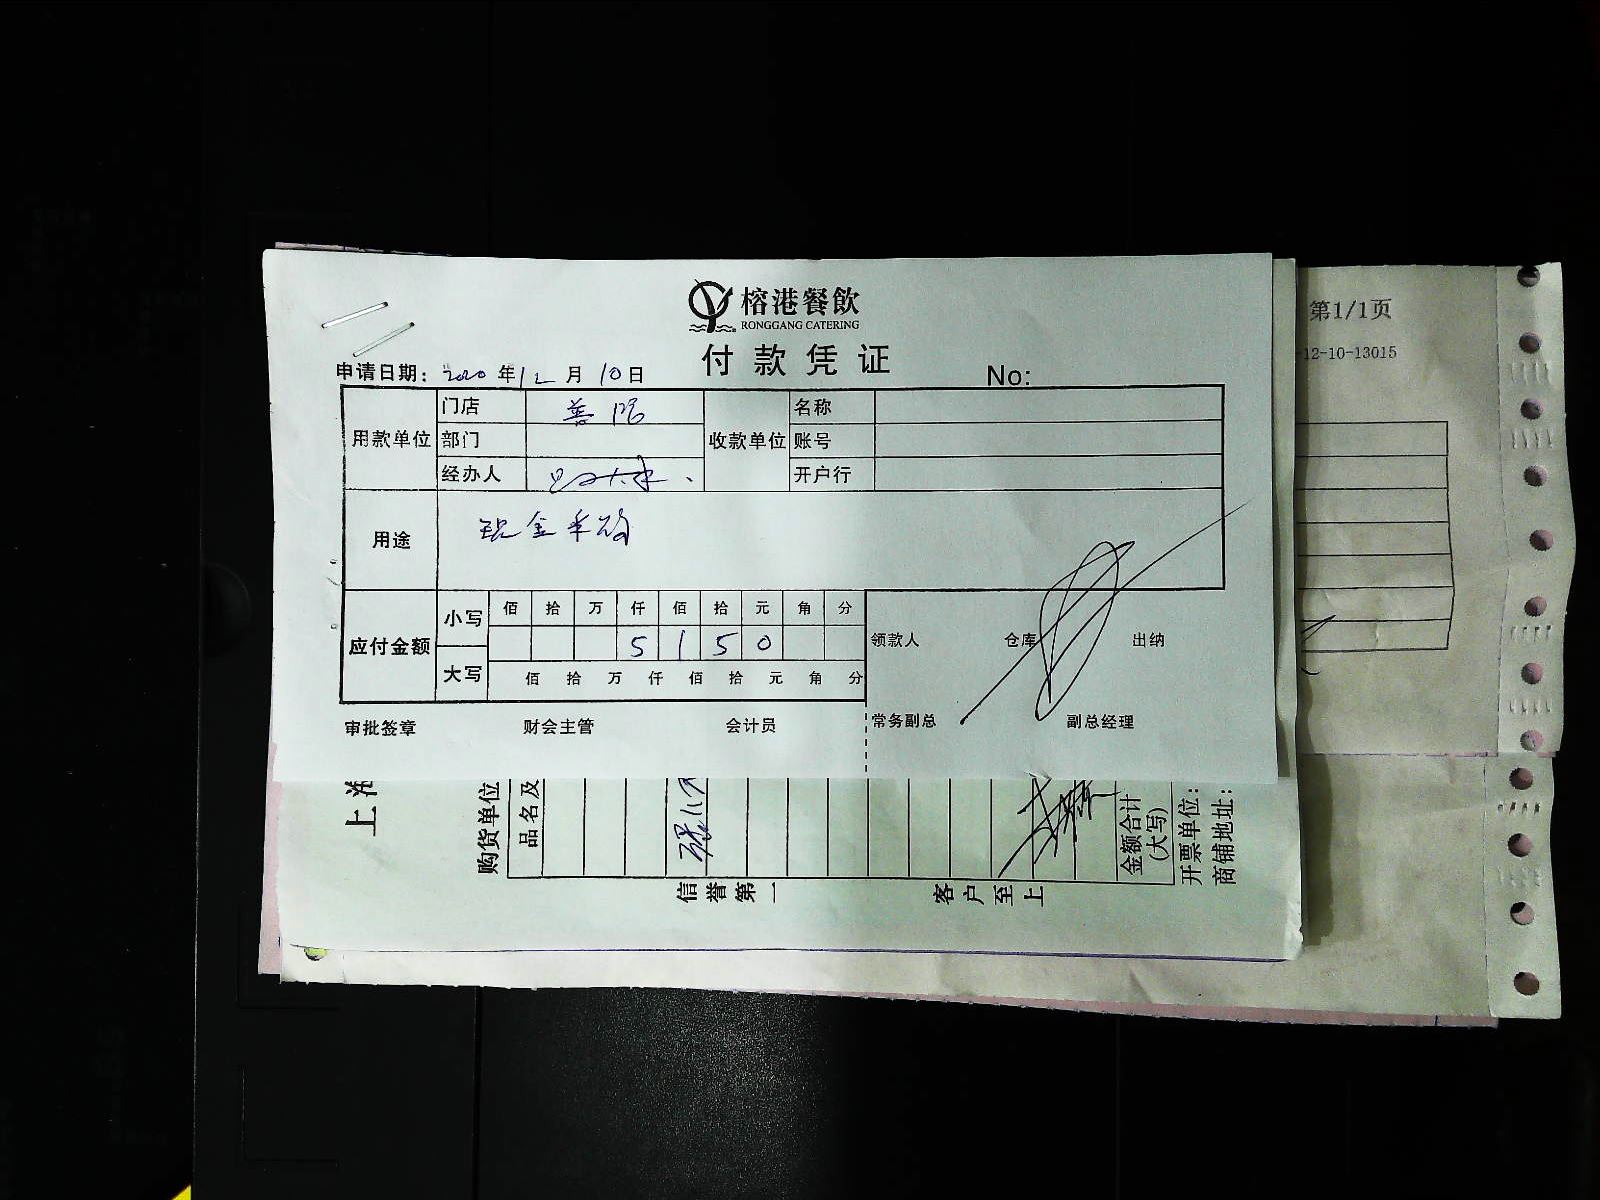 榕港餐飲
RONGGANG CATERING
付款凭证
申请日期: 2020 年 12 月 10 日
No:
用款单位 门店 收款单位 名称
部门 账号
经办人 开户行
用途 现金采购
应付金额 小写 佰 拾 万 仟 佰 拾 元 角 分
5 1 5 0
大写 佰 拾 万 仟 佰 拾 元 角 分
领款人 仓库 出纳
审批签章 财会主管 会计员 常务副总 副总经理
第1/1页
-12-10-13015
上海
购货单位
品名及
金额合计
(大写)
开票单位:
商铺地址:
信誉第一 客户至上